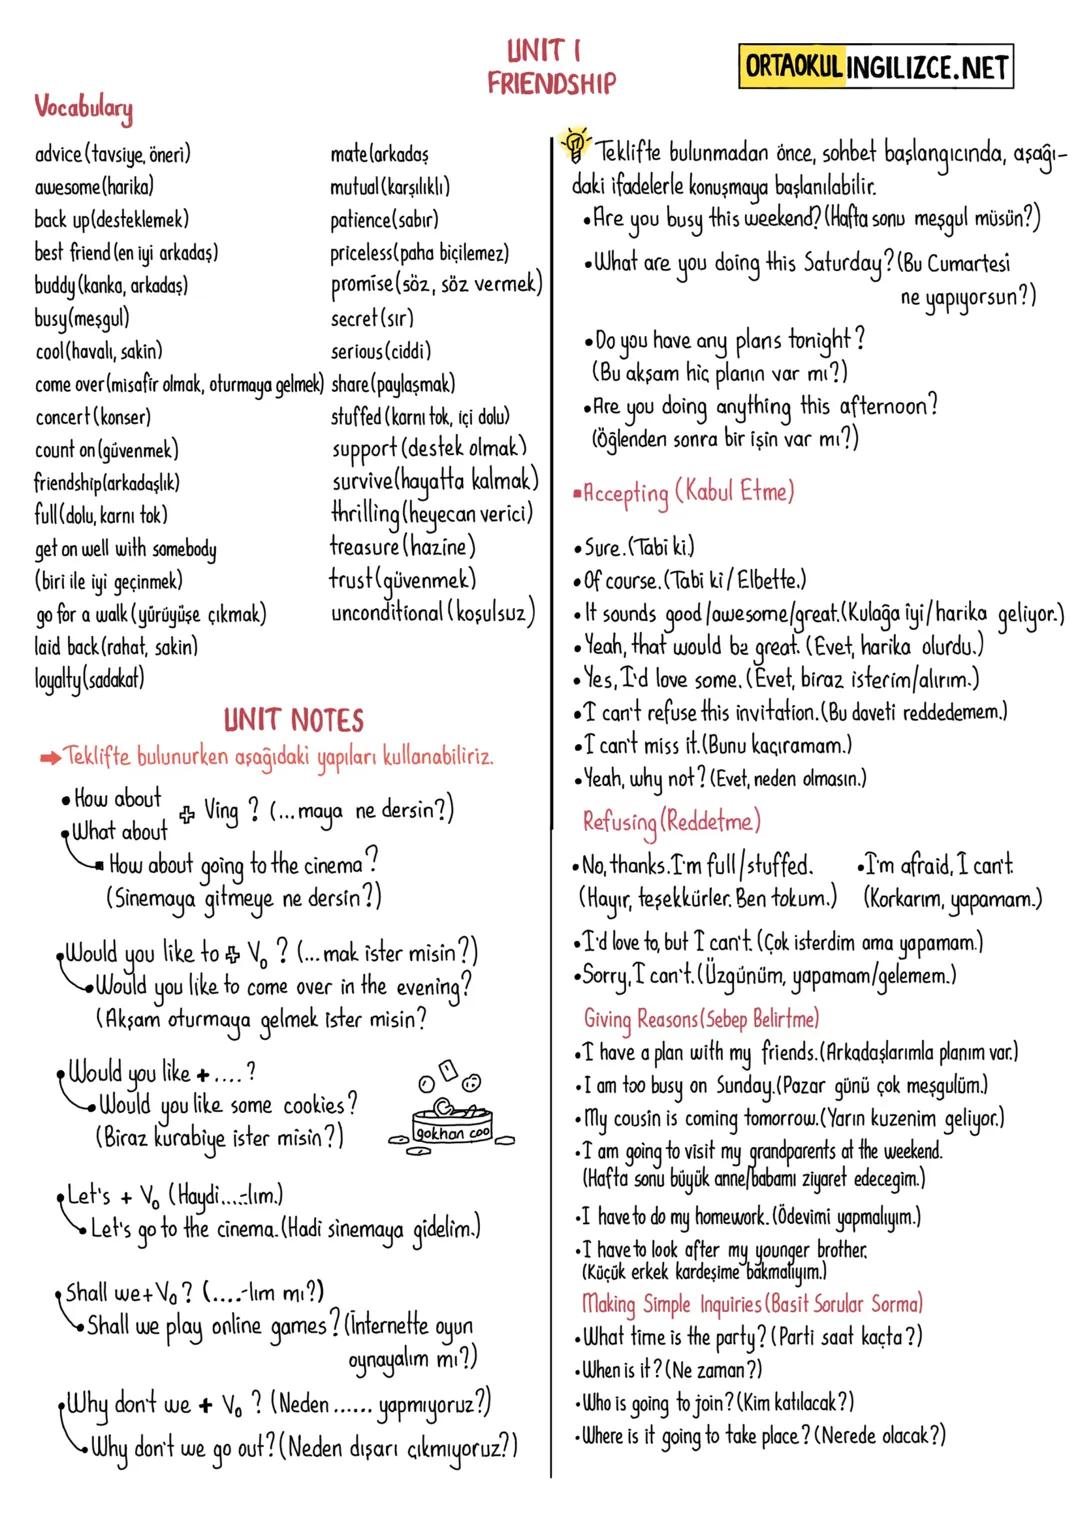 UNIT 1
FRIENDSHIP
ORTAOKULINGILIZCE.NET
Vocabulary
advice (tavsiye, öneri)
awesome (harika)
back up (desteklemek)
best friend (en iyi arkadaş)
buddy (kanka, arkadaş)
busy (meşgul)
cool (havalı, sakin)
come over (misafir olmak, oturmaya gelmek)
concert (konser)
count on (güvenmek)
friendship (arkadaşlık)
full (dolu, karnı tok)
get on well with somebody
(biri ile iyi geçinmek)
go for a walk (yürüyüşe çıkmak)
laid back (rahat, sakin)
loyalty (sadakat)
mate (arkadaş
mutual (karşılıklı)
patience (sabır)
priceless (paha biçilemez)
promise (söz, söz vermek)
secret (sır)
serious (ciddi)
share (paylaşmak)
stuffed (karnı tok, içi dolu)
support (destek olmak)
survive (hayatta kalmak)
thrilling (heyecan verici)
treasure (hazine)
trust (güvenmek)
unconditional (koşulsuz)
UNIT NOTES
➡ Teklifte bulunurken aşağıdaki yapıları kullanabiliriz.
• How about
• What about
+ Ving ? (...maya ne dersin?)
How about going to the cinema?
(Sinemaya gitmeye ne dersin?)
• Would you like to + V₀ ? (...mak ister misin?)
• Would you like to come over in the evening?
(Akşam oturmaya gelmek ister misin?
• Would you like + ....?
• Would you like some cookies?
(Biraz kurabiye ister misin?)
gokhan coo
• Let's + V₀ (Haydi...-lım.)
• Let's go to the cinema. (Hadi sinemaya gidelim.)
• Shall we + V₀? (....-lım mı?)
• Shall we play online games? (İnternette oyun
oynayalım mı?)
• Why don't we + V₀ ? (Neden ...... yapmıyoruz?)
• Why don't we go out? (Neden dışarı çıkmıyoruz?)
Teklifte bulunmadan önce, sohbet başlangıcında, aşağı-
daki ifadelerle konuşmaya başlanılabilir.
• Are you busy this weekend? (Hafta sonu meşgul müsün?)
• What are you doing this Saturday? (Bu Cumartesi
ne yapıyorsun?)
• Do you have any plans tonight?
(Bu akşam hiç planın var mı?)
• Are you doing anything this afternoon?
(Öğlenden sonra bir işin var mı?)
▪ Accepting (Kabul Etme)
• Sure. (Tabi ki.)
• Of course. (Tabi ki / Elbette.)
• It sounds good/awesome/great. (Kulağa iyi/harika geliyor.)
• Yeah, that would be great. (Evet, harika olurdu.)
• Yes, I'd love some. (Evet, biraz isterim/alırım.)
• I can't refuse this invitation. (Bu daveti reddedemem.)
• I can't miss it. (Bunu kaçıramam.)
• Yeah, why not? (Evet, neden olmasın.)
Refusing (Reddetme)
• No, thanks. I'm full/stuffed.
(Hayır, teşekkürler. Ben tokum.)
• I'm afraid, I can't.
(Korkarım, yapamam.)
• I'd love to, but I can't. (Çok isterdim ama yapamam.)
• Sorry, I can't. (Üzgünüm, yapamam/gelemem.)
Giving Reasons (Sebep Belirtme)
• I have a plan with my friends. (Arkadaşlarımla planım var.)
• I am too busy on Sunday. (Pazar günü çok meşgulüm.)
• My cousin is coming tomorrow. (Yarın kuzenim geliyor.)
• I am going to visit my grandparents at the weekend.
(Hafta sonu büyük anne/babamı ziyaret edecegim.)
• I have to do my homework. (Ödevimi yapmalıyım.)
• I have to look after my younger brother.
(Küçük erkek kardeşime bakmalıyım.)
Making Simple Inquiries (Basit Sorular Sorma)
• What time is the party? (Parti saat kaçta?)
• When is it? (Ne zaman?)
• Who is going to join? (Kim katılacak?)
• Where is it going to take place? (Nerede olacak?)